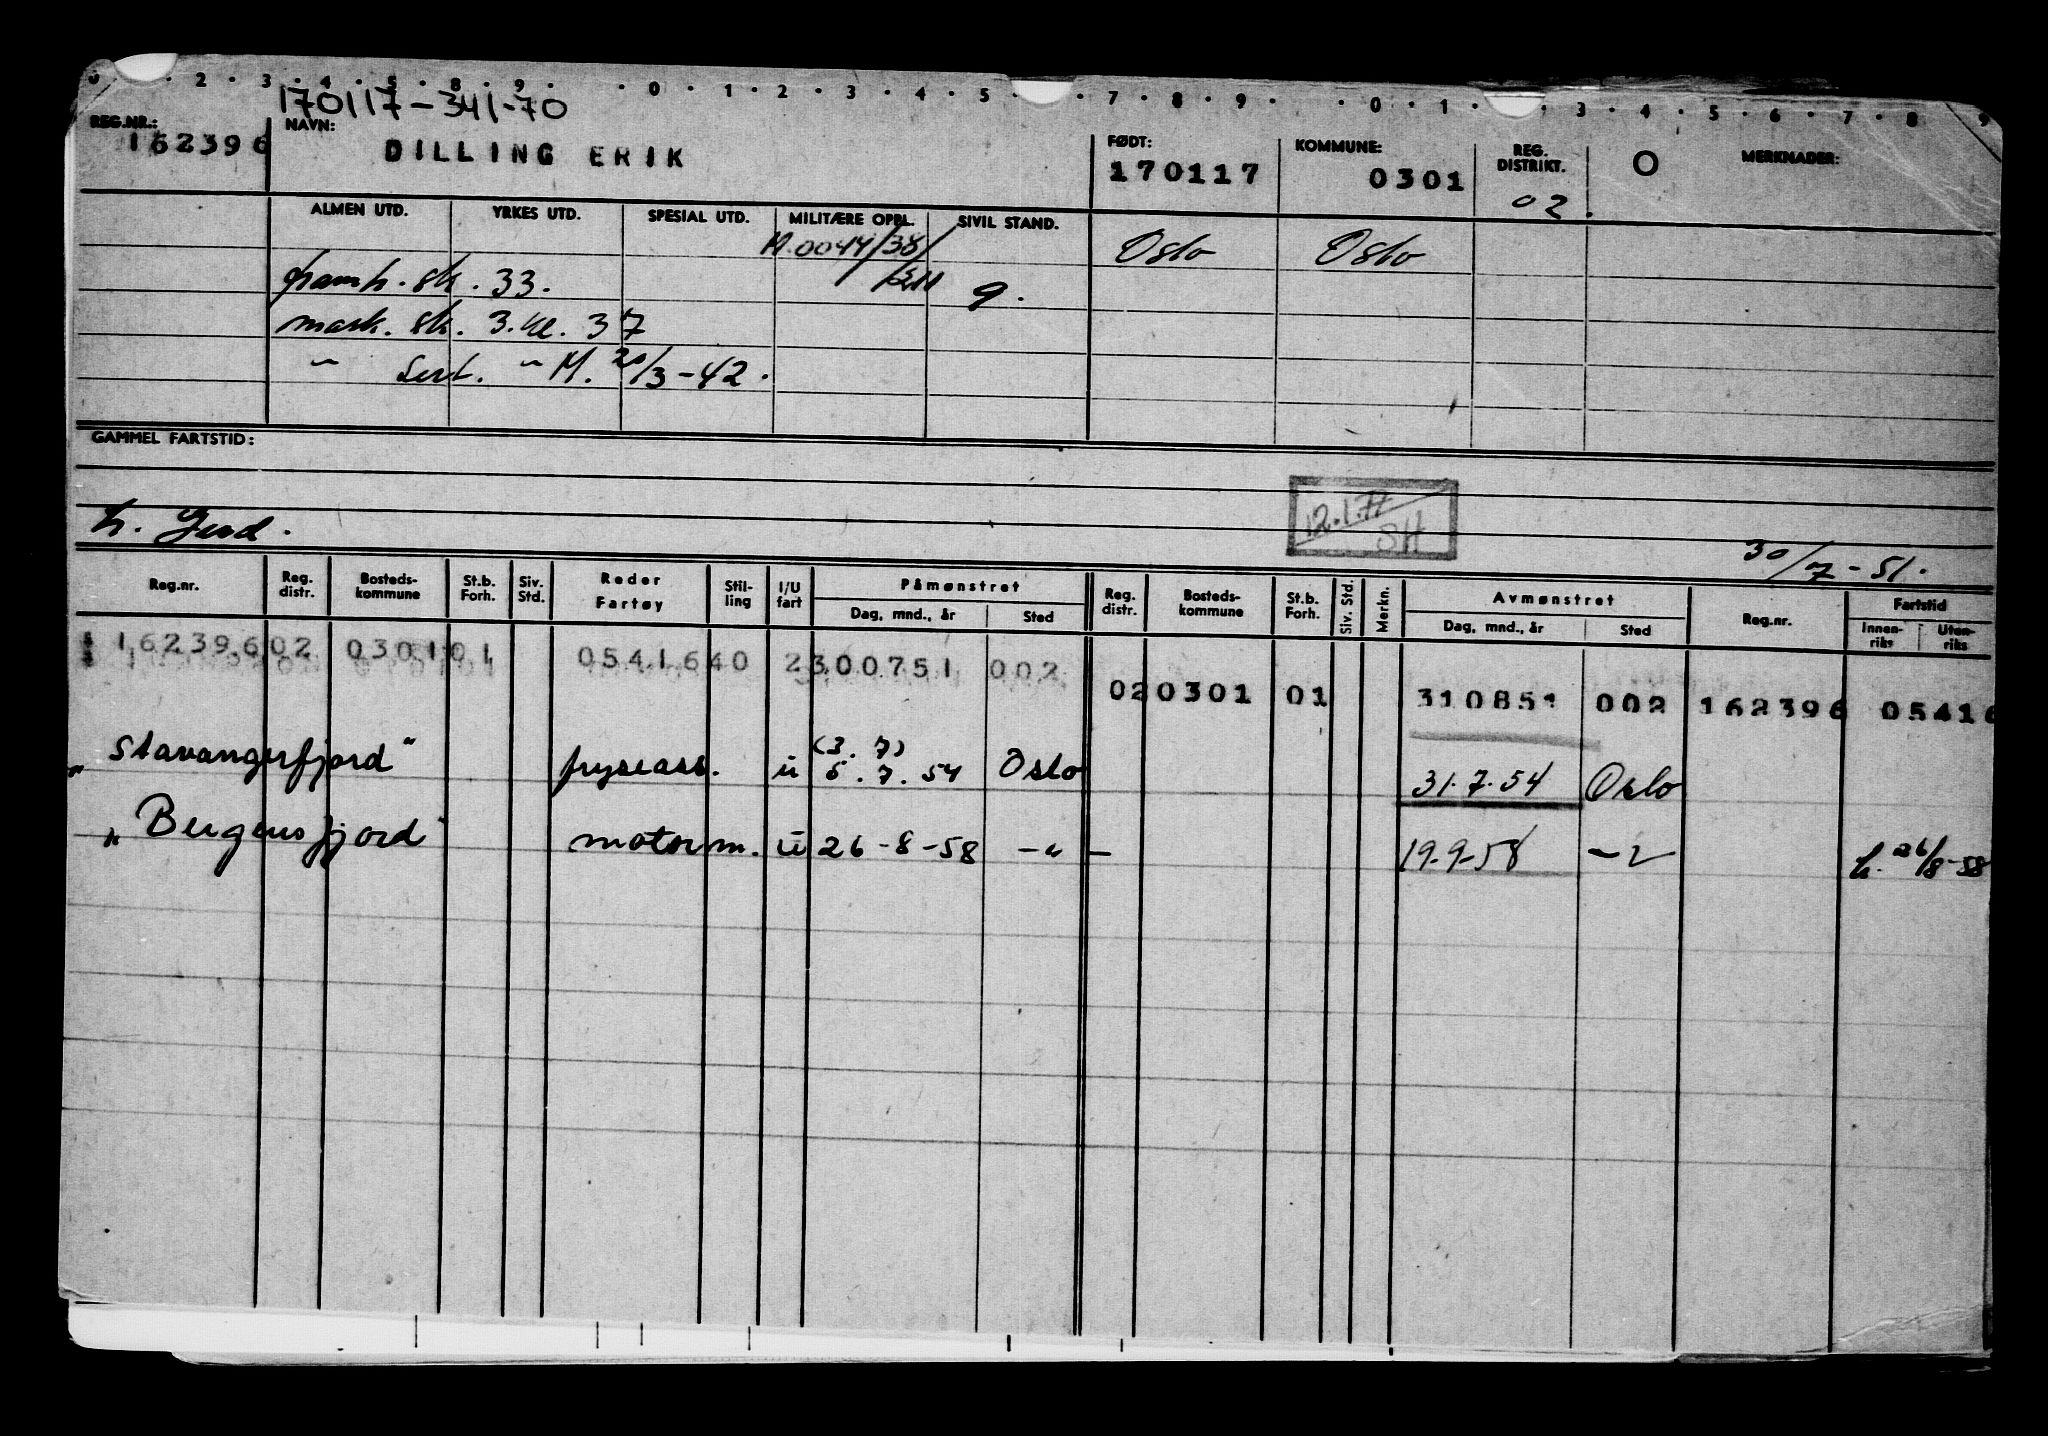 0 . 2 . 3 . 4 . 5 . 8 . 9 . . 0 . 1 . 2 . 3 . 4 . 5 . . 7 . 8 . 9 . . 0 . 1 . . 3 . 4 . 5 . 6 . 7 . 8 . 9
170117-341-70
REG.NR.: NAVN: FØDT: KOMMUNE: REG. DISTRIKT. O MERKNADER:
162396 DILLING ERIK 170117 0301 02.
ALMEN UTD. YRKES UTD. SPESIAL UTD. MILITÆRE OPPL. SIVIL STAND.
M.0044/38/ Oslo Oslo
framh. sk. 33. g.
mask. sk. 3. kl. 37
" sert. " M. 20/3-42.
GAMMEL FARTSTID:
12.1.77
SH
30/7-51.
Reg.nr. Reg. distr. Bosteds-kommune St.b. Forh. Siv. Std. Reder Fartøy Stil-ling I/U fart Påmønstret Reg. distr. Bosteds-kommune St.b. Forh. Siv. Std. Merkn. Avmønstret Reg.nr. Fartstid
Dag, mnd., år Sted Dag, mnd., år Sted Innen-riks Uten-riks
162396 02 0301 01 05416 40 2 300751 002
02 0301 01 310851 002 162396 05416
(3. 7)
"Stavangerfjord" fryseass. u 5.7.54 Oslo 31.7.54 Oslo
"Bergensfjord" motorm. u 26-8-58 -"- 19.9-58 -"- h. 26/8-58